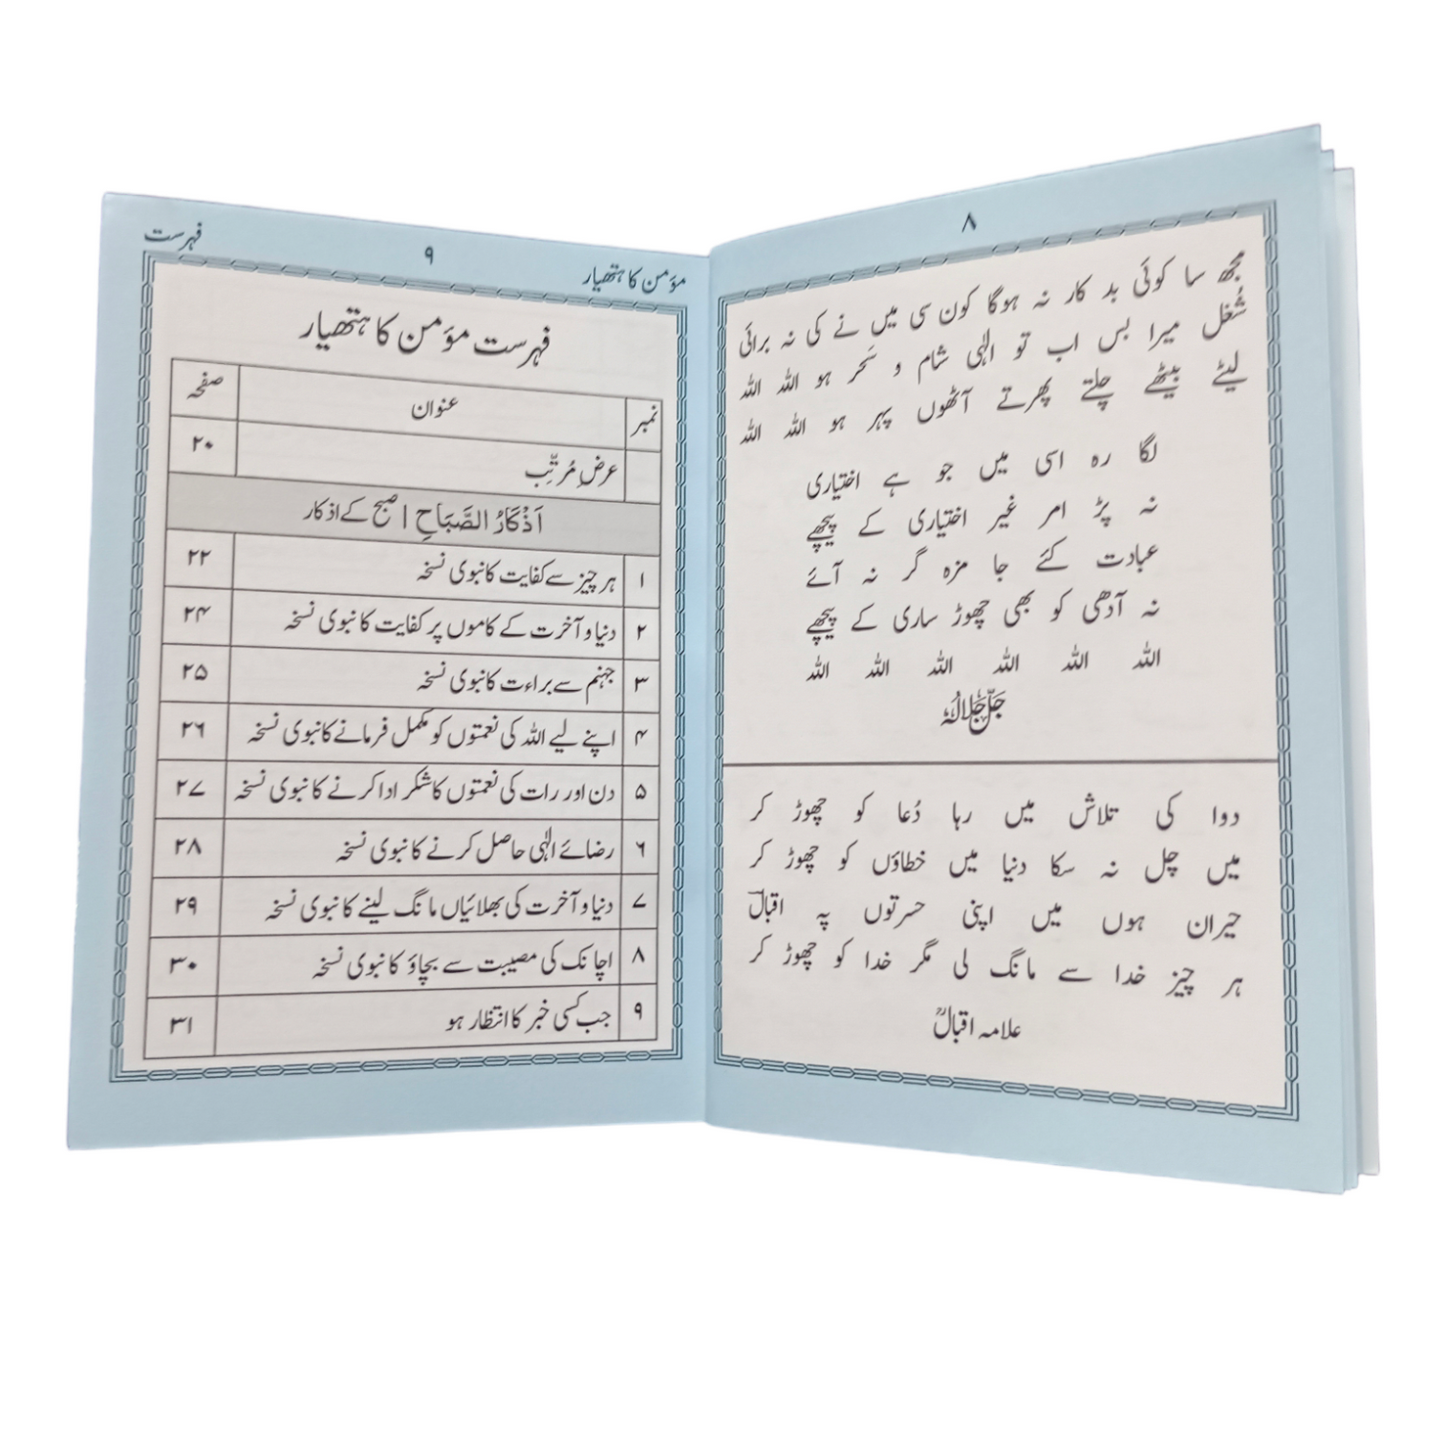 ۸
مجھ سا کوئی بد کار نہ ہوگا کون سی میں نے کی نہ برائی
شُغل میرا بس اب تو الٰہی شام و سَحر ہو اللہ اللہ
لیٹے بیٹھے چلتے پھرتے آٹھوں پہر ہو اللہ اللہ
لگا رہ اسی میں جو ہے اختیاری
نہ پڑ امر غیر اختیاری کے پیچھے
عبادت کئے جا مزہ گر نہ آئے
نہ آدھی کو بھی چھوڑ ساری کے پیچھے
اللہ اللہ اللہ اللہ اللہ اللہ
جَلَّ جَلَالُہٗ
دوا کی تلاش میں رہا دُعا کو چھوڑ کر
میں چل نہ سکا دنیا میں خطاؤں کو چھوڑ کر
حیران ہوں میں اپنی حسرتوں پہ اقبالؔ
ہر چیز خدا سے مانگ لی مگر خدا کو چھوڑ کر
علامہ اقبالؒ
مؤمن کا ہتھیار ۹ فہرست
فہرست مؤمن کا ہتھیار
نمبر عنوان صفحہ
عرضِ مُرتِّب ۲۰
اَذْکَارُ الصَّبَاحِ | صبح کے اذکار
۱ ہر چیز سے کفایت کا نبوی نسخہ ۲۲
۲ دنیا و آخرت کے کاموں پر کفایت کا نبوی نسخہ ۲۴
۳ جہنم سے براءت کا نبوی نسخہ ۲۵
۴ اپنے لیے اللہ کی نعمتوں کو مکمل فرمانے کا نبوی نسخہ ۲۶
۵ دن اور رات کی نعمتوں کا شکر ادا کرنے کا نبوی نسخہ ۲۷
۶ رضائے الٰہی حاصل کرنے کا نبوی نسخہ ۲۸
۷ دنیا و آخرت کی بھلائیاں مانگ لینے کا نبوی نسخہ ۲۹
۸ اچانک کی مصیبت سے بچاؤ کا نبوی نسخہ ۳۰
۹ جب کسی خبر کا انتظار ہو ۳۱